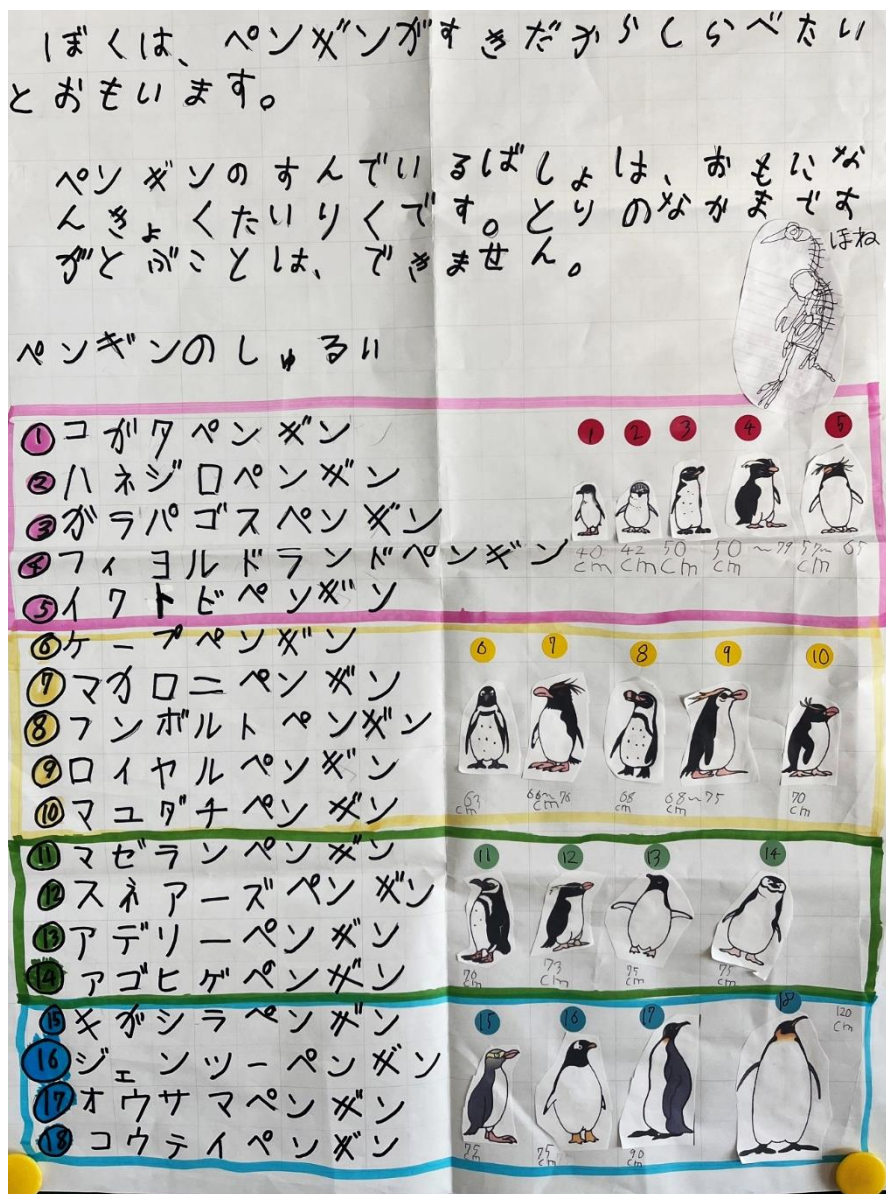 ぼくは、ペンギンがすきだからしらべたい
とおもいます。
ペンギンのすんでいるばしょは、おもにな
んきょくたいりくです。とりのなかまです
がとぶことは、できません。
ほね
ペンギンのしゅるい
①コガタペンギン
②ハネジロペンギン
③ガラパゴスペンギン
④フィヨルドランドペンギン
⑤イワトビペンギン
1 2 3 4 5
40cm 42cm 50cm 50cm~79 57cm~65
⑥ケープペンギン
⑦マカロニペンギン
⑧フンボルトペンギン
⑨ロイヤルペンギン
⑩マユダチペンギン
6 7 8 9 10
63cm 66cm~76 68cm 68cm~75 70cm
⑪マゼランペンギン
⑫スネアーズペンギン
⑬アデリーペンギン
⑭アゴヒゲペンギン
11 12 13 14
70cm 73cm 75cm 75cm
⑮キガシラペンギン
⑯ジェンツーペンギン
⑰オウサマペンギン
⑱コウテイペンギン
15 16 17 18
75cm 75cm 90cm 120cm